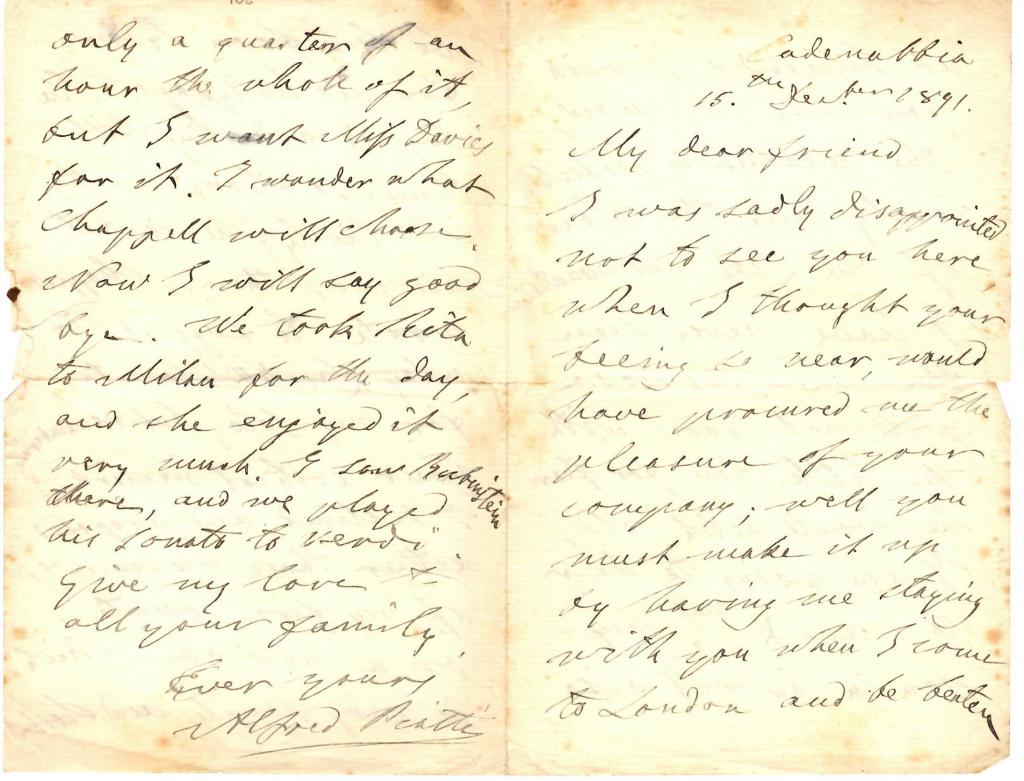 Cadenabbia
15.th Decber 1891.
My dear friend
I was sadly disappointed
not to see you here
when I thought your
beeing so near, would
have procured me the
pleasure of your
company; well you
must make it up
by having me staying
with you when I come
to London and be beaten
only a quarter of an
hour the whole of it,
but I want Miss Davies
for it. I wonder what
Chappell will choose.
Now I will say good
bye. We took Rita
to Milan for the day,
and she enjoyed it
very much. I saw Rubinstein
there, and we played
his Sonata to Verdi.
Give my love to
all your family.
Ever yours
Alfred Piatti